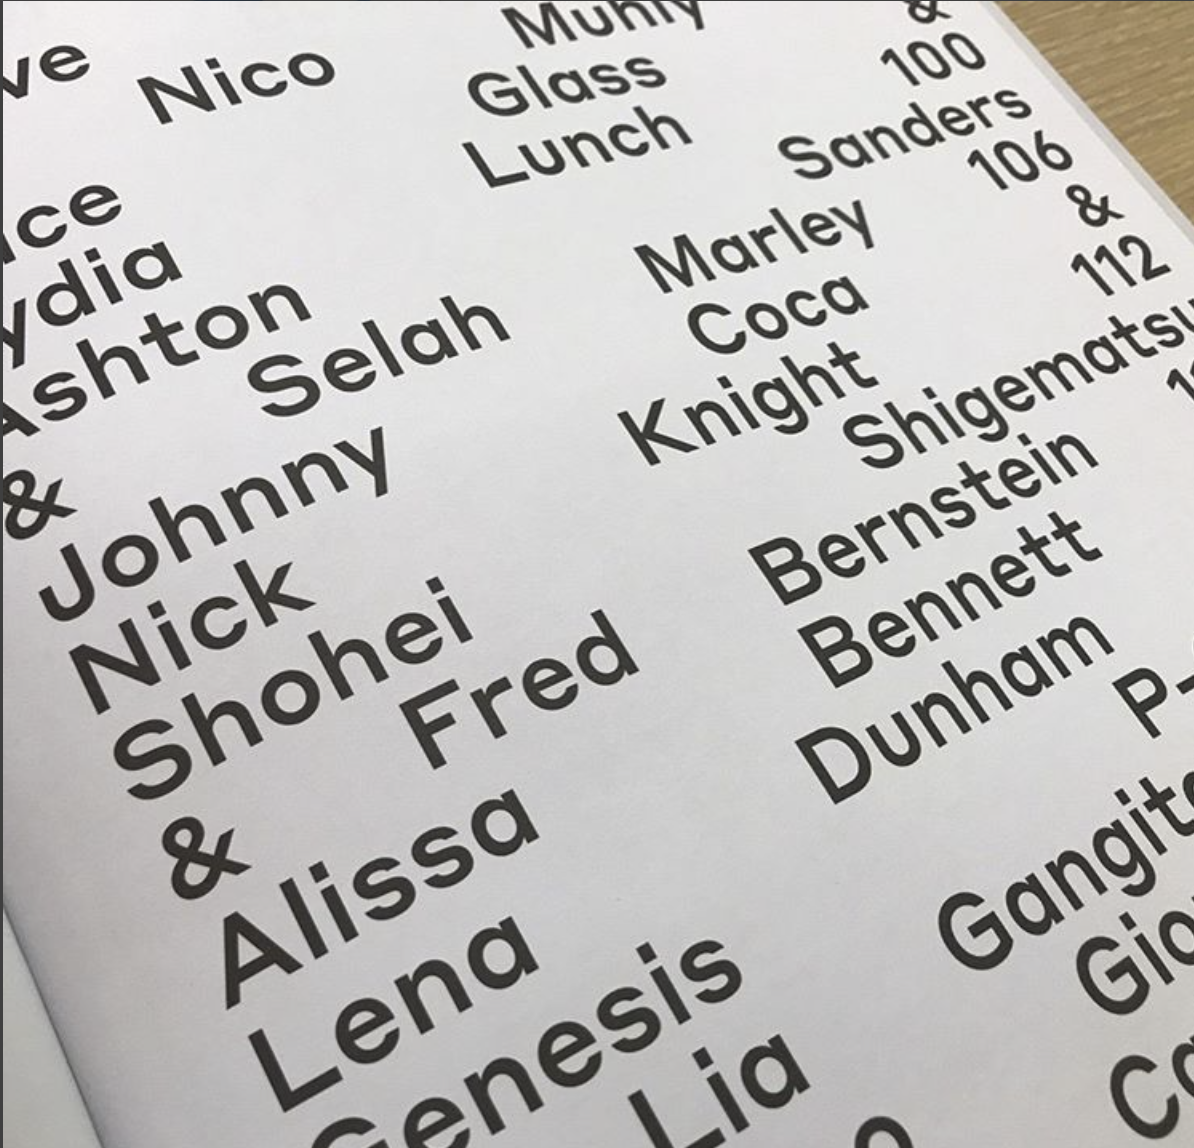 ve
Nico Muhly
ce Glass &
ydia Lunch 100
Ashton Sanders
Selah Marley 106
&
Johnny Coca &
Nick Knight 112
Shohei Shigematsu
Fred Bernstein
&
Alissa Bennett
Lena Dunham
Genesis P-
Lia Gangit
Gio